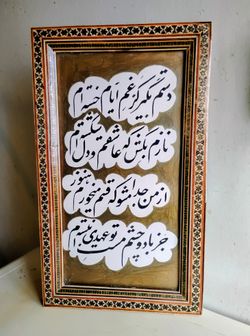 دستم بگیر کز غم ایام خسته ام
نازم بکش که عاشقم و دل شکسته ام
از من جدا مشو که قسم میخورم هنوز
جز با دو چشم مست تو عهدی نبسته ام